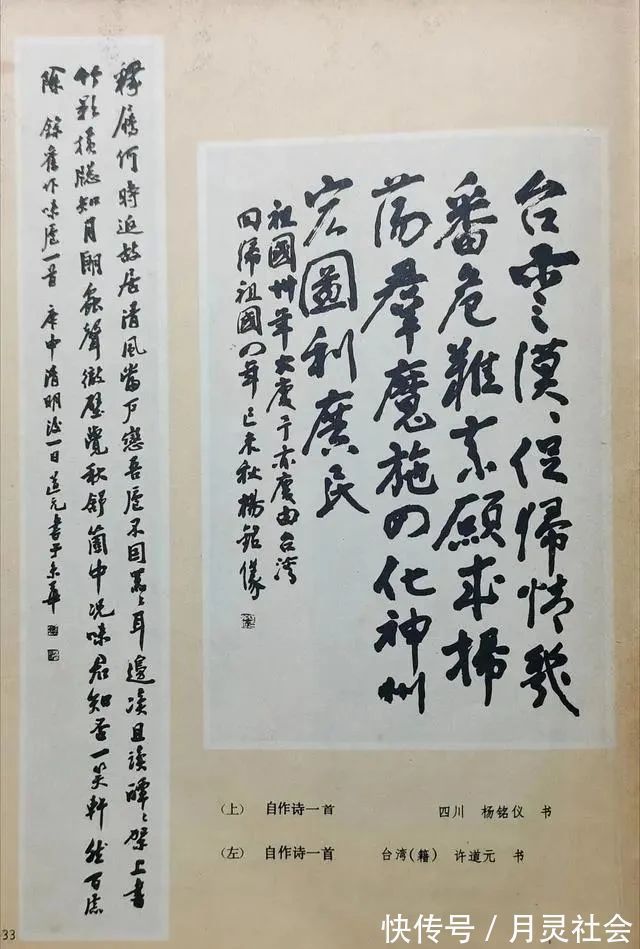 台雲漠〻促歸情幾
番危難素願求掃
蕩羣魔施四化神州
宏圖利民
祖國卅年大慶予亦慶由台灣
回歸祖國四年己未秋楊銘儀
何時返故居清風當戶戀吾廬不因耳邊且讀架上書
竹影橫牕知月朗蟲聲徹壁覺秋舒箇中況味君知否一笑軒然百慮
除 錄舊作吟廬一首 庚申清明後一日道元書于京華
（上） 自作诗一首 四川 杨铭仪 书
（左） 自作诗一首 台湾(籍) 许道元 书
33
快传号／月灵社会